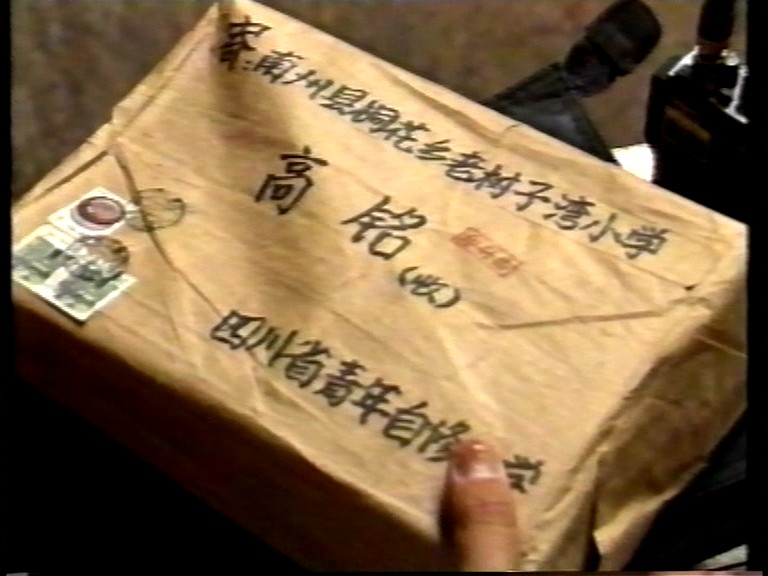 寄:南州县桐花乡老树子湾小学
高铭(收)
四川省青年自修 学